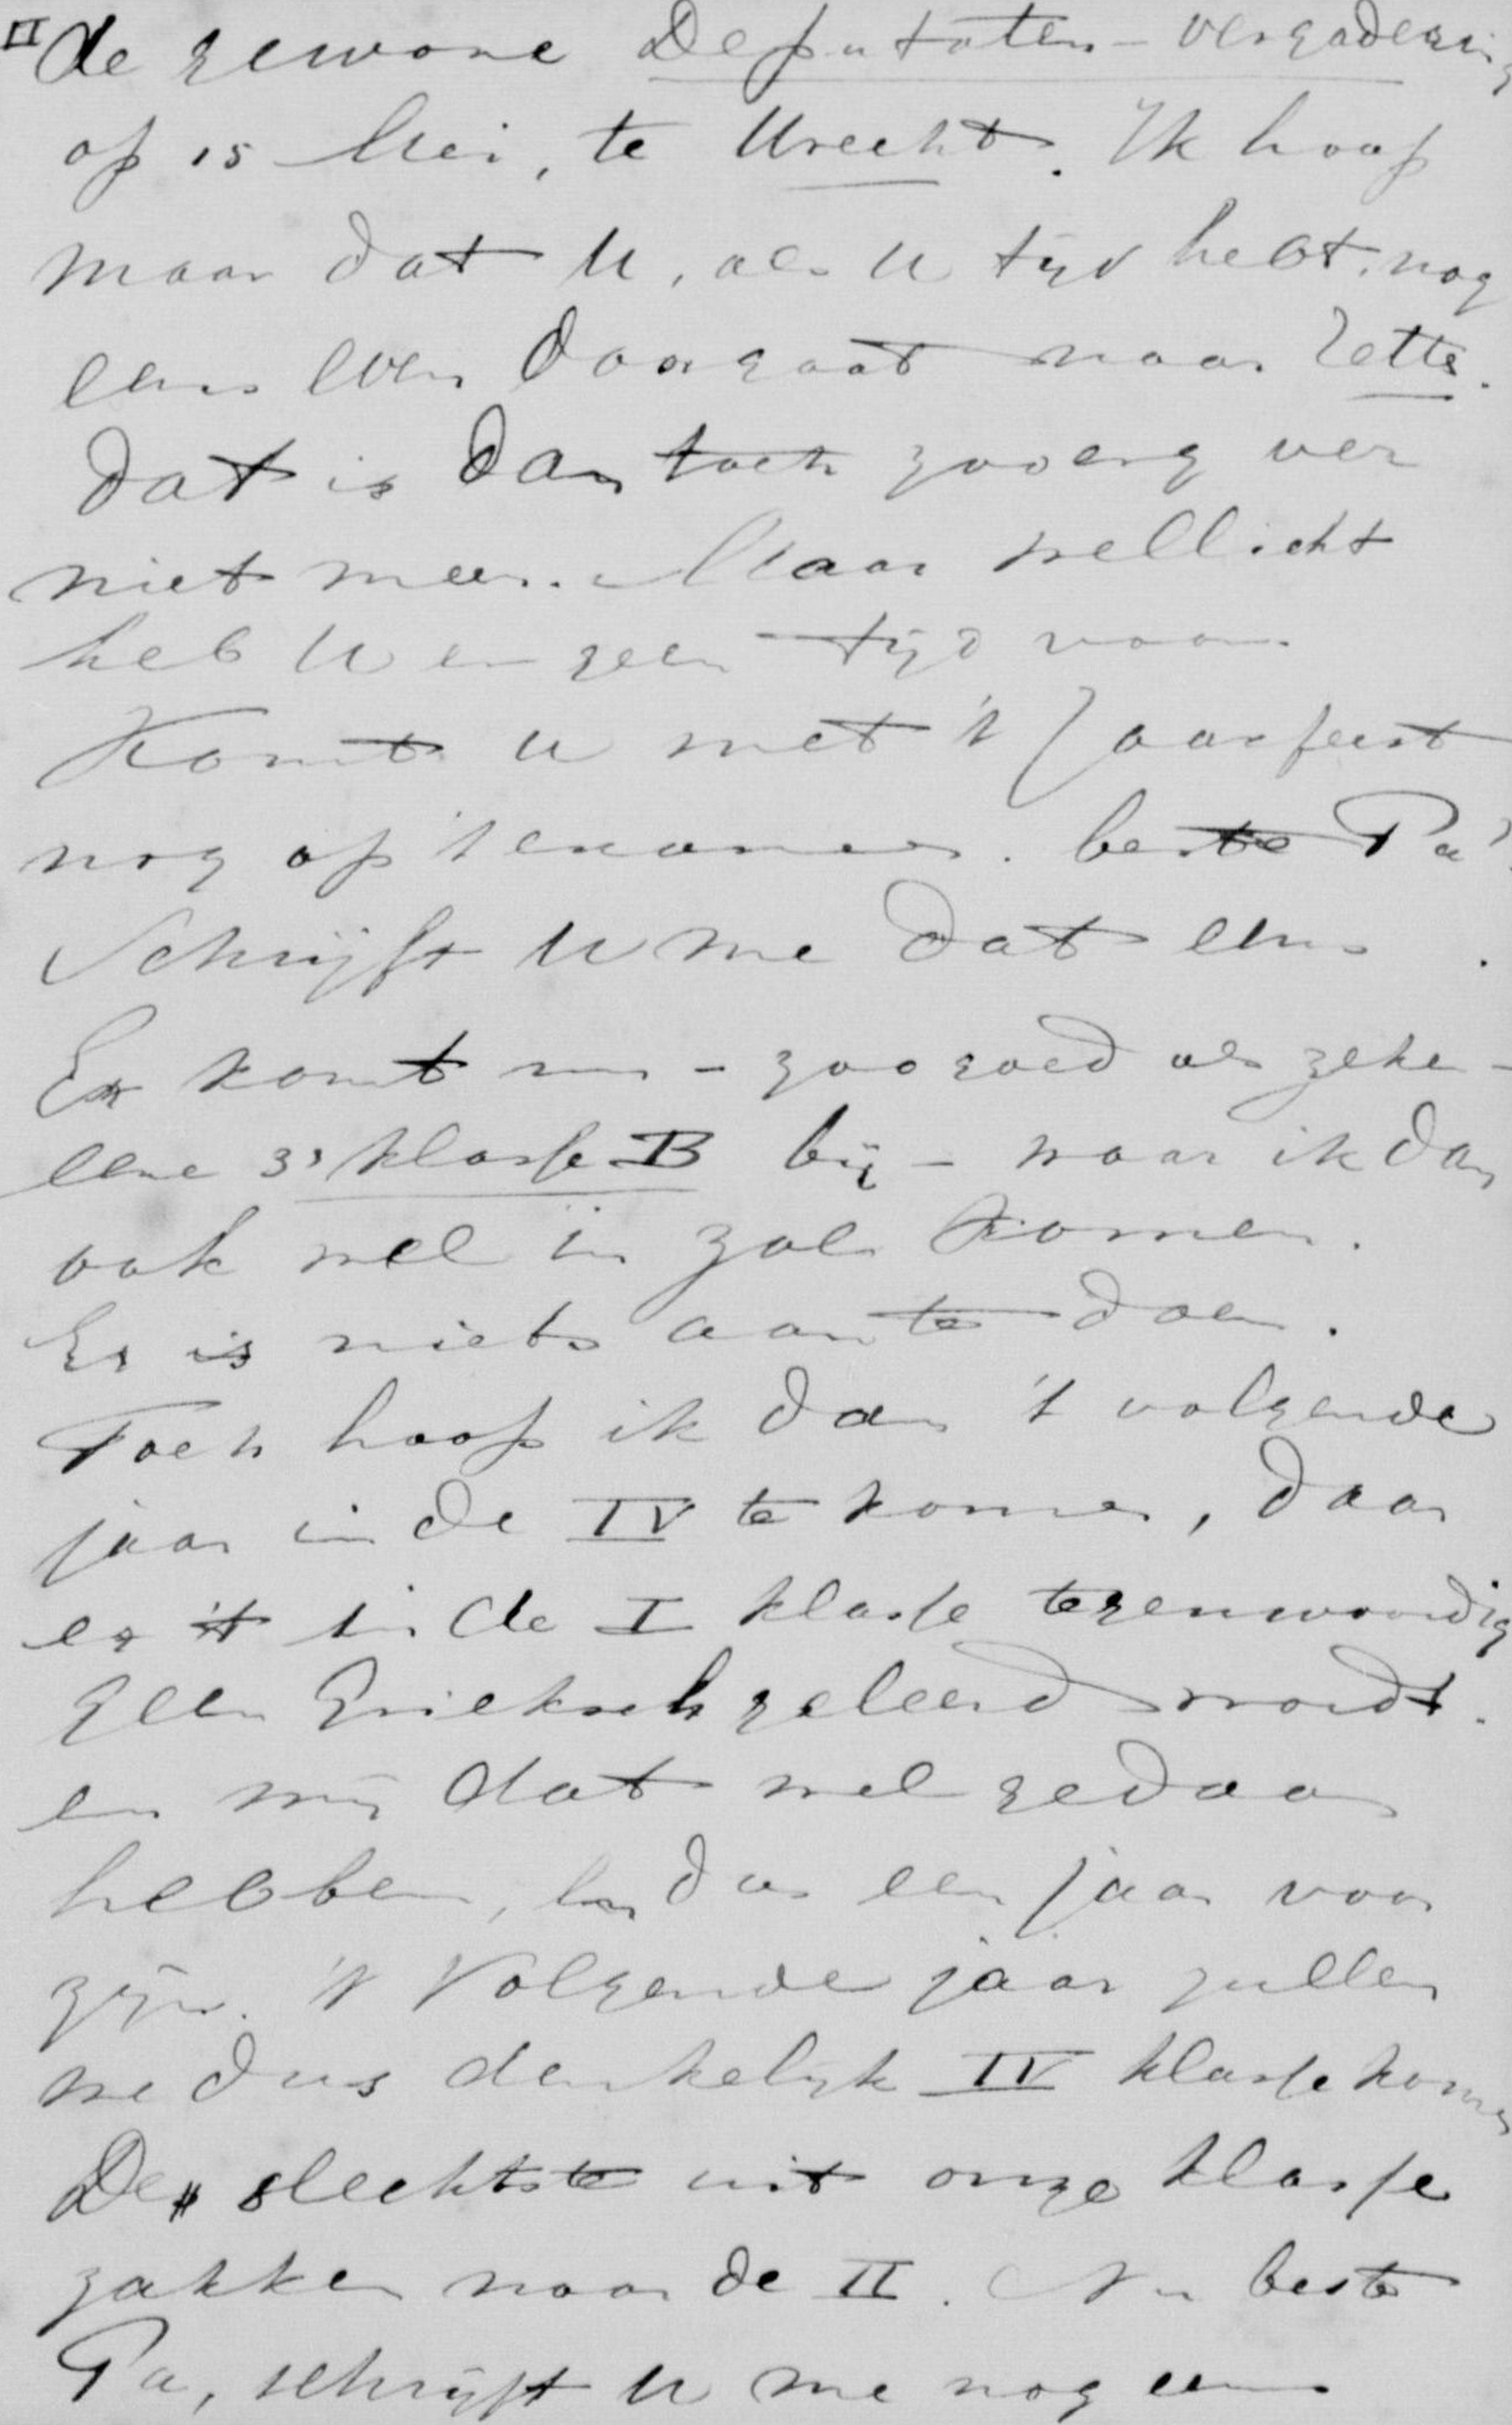 II de gewone Deputaten-vergadering
op 15 Mei, te Urecht. Ik hoop
maar dat U, als U tijd hebt, nog
eens even doorgaat naar Zette.
dat is dan toch zoo erg ver
niet meer. Maar wellicht
heb U er geen tijd voor.
Komt u met 't Jaarfeest
nog op 't examen. beste Pa?
Schrijft U me dat eens.
Er komt nu - zoo goed als zeker -
eene 3e klasse B bij - waar ik dan
ook wel in zal komen.
Er is niets aan te doen.
Toch hoop ik dan 't volgende
jaar in de IV te komen, daar
er in de I klasse tegenwoordig
geen Grieksch geleerd wordt.
en wij dat wel gedaan
hebben, en dus een jaar voor
zijn. 't Volgende jaar zullen
we dus denkelijk IV klasse komen
De slechtste uit onze klasse
zakken naar de II. Nu beste
Pa, schrijft U me nog eens